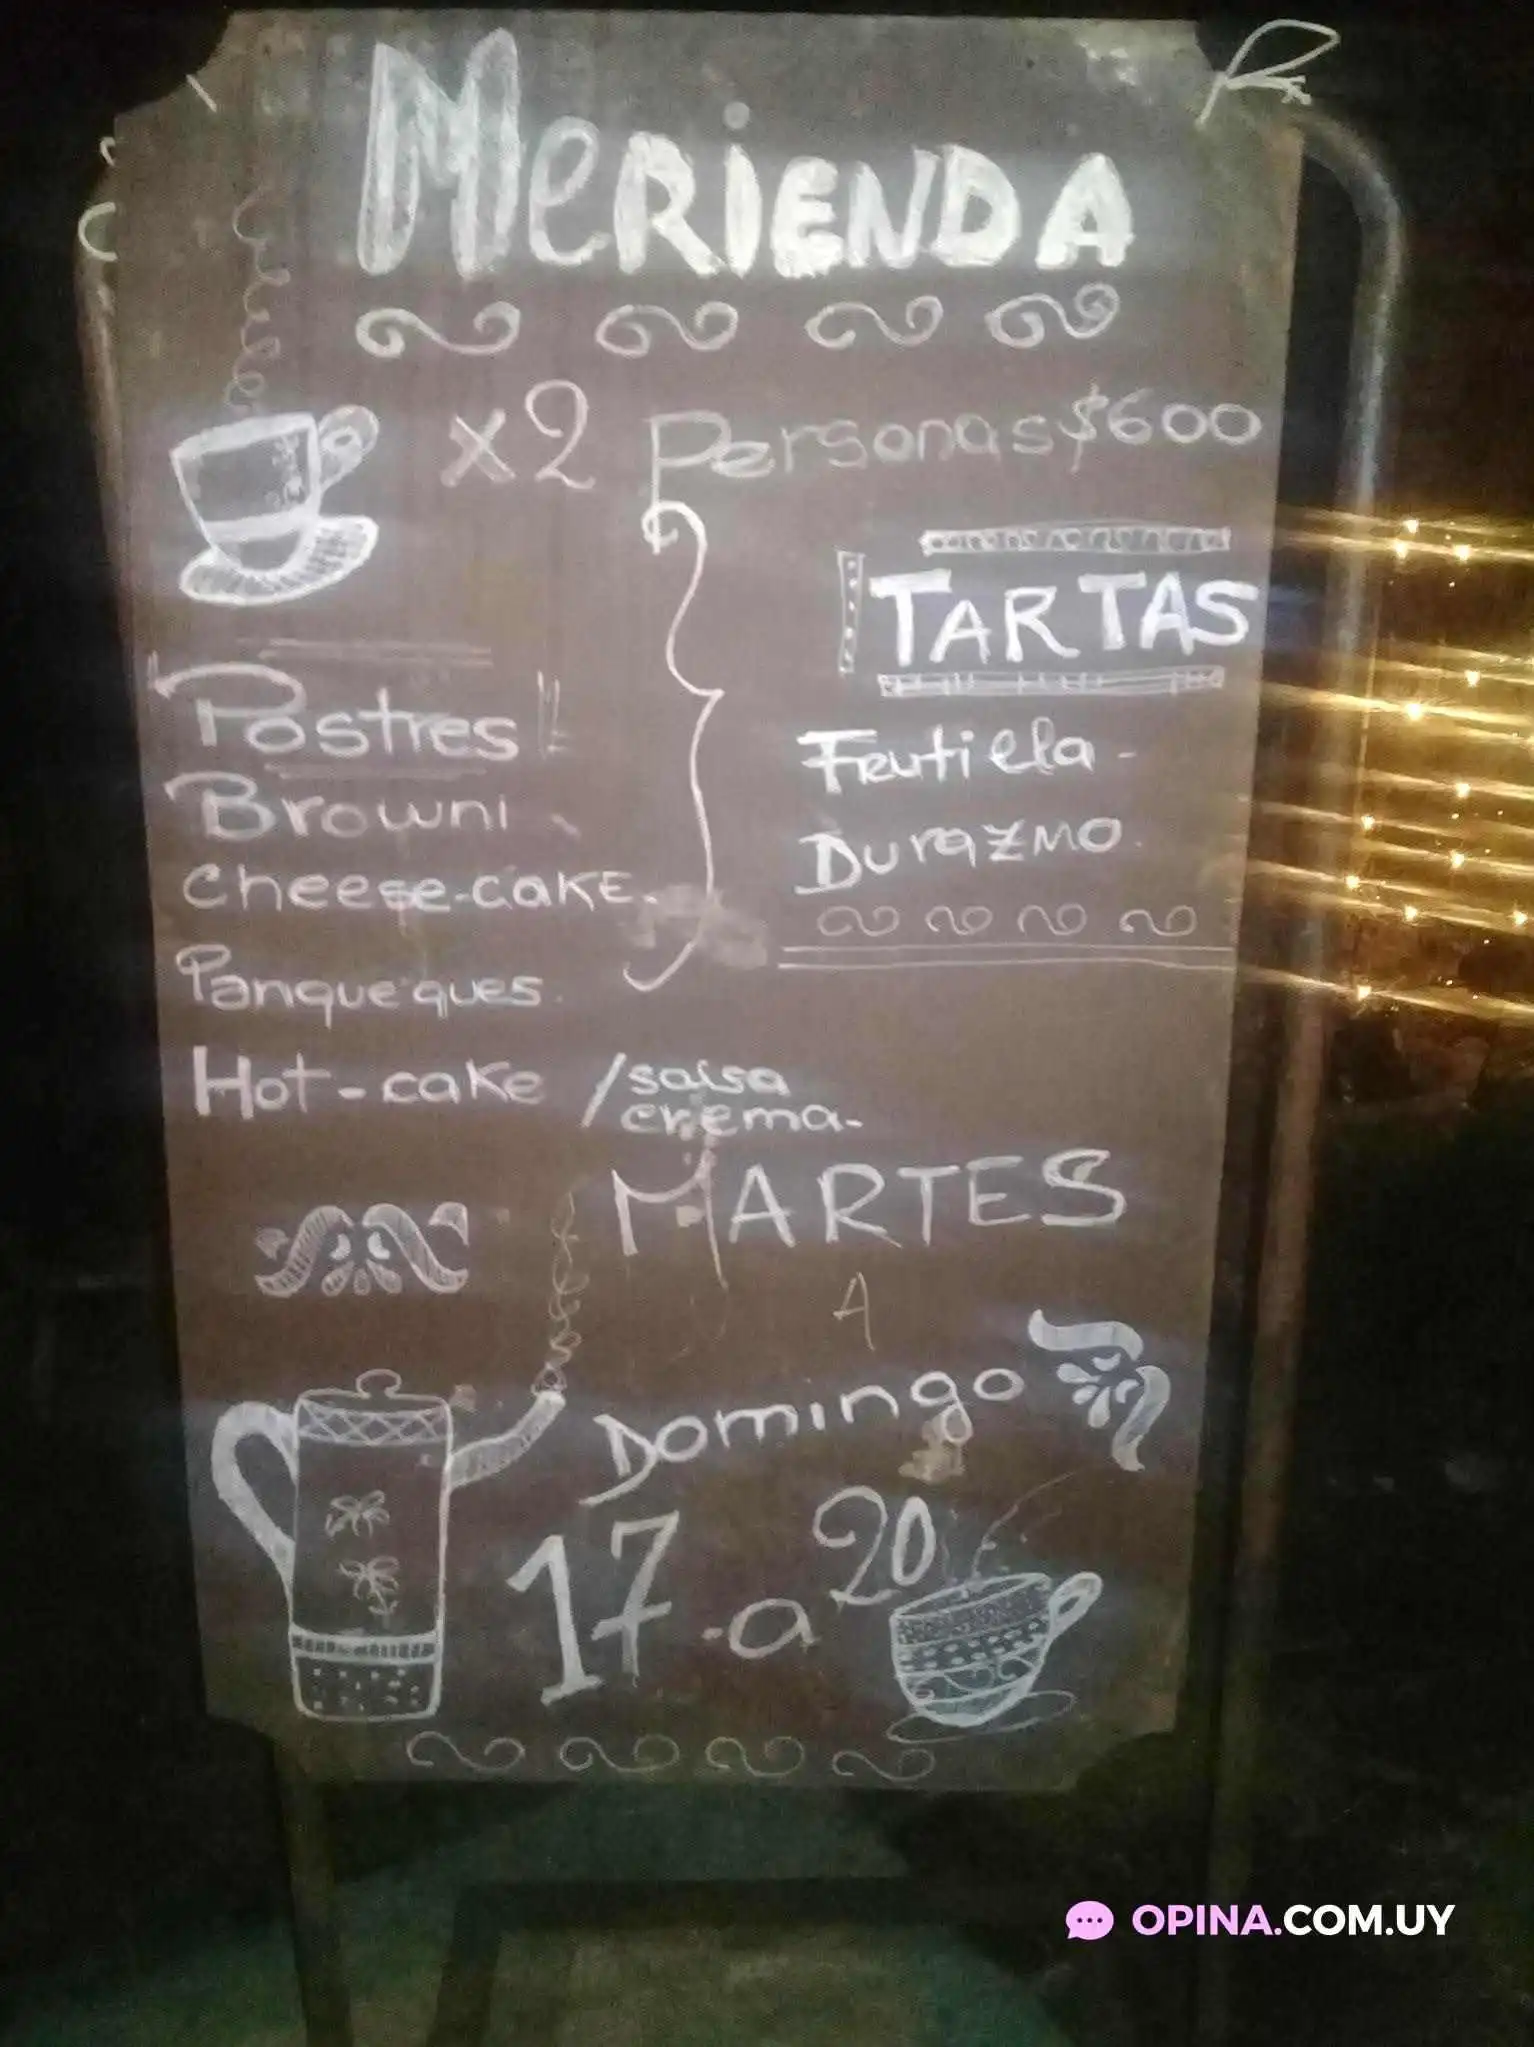 MeRIENDA
x2 Personas $600
Postres
Browni
cheese-cake.
Panqueques.
Hot-cake / salsa
crema-
TARTAS
Frutilla -
Durazno.
MARTES
A
Domingo
17 - a 20
OPINA.COM.UY